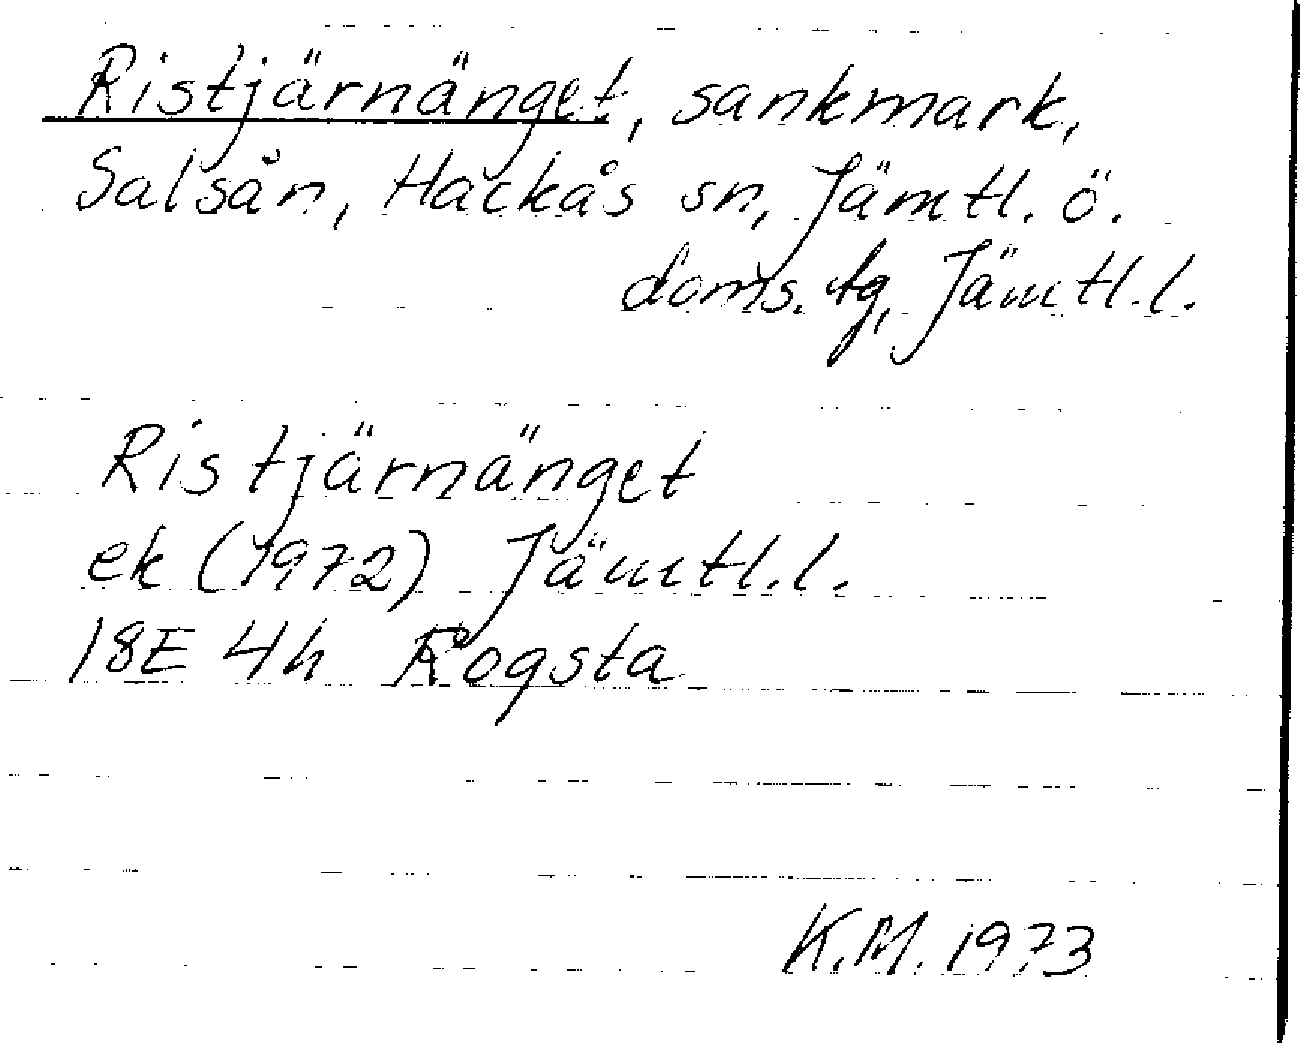 Ristjärnänget, sankmark,
Salsån, Hackås sn, Jämtl. ö.
doms. tg, Jämtl. l.
Ristjärnänget
ek (1972) Jämtl. l.
18E 4h Rogsta
K.M. 1973